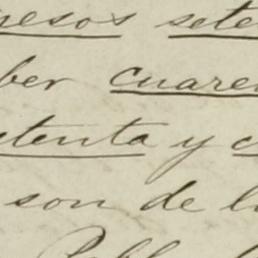 pesos sete
ber cuaren
etenta y c
son de l